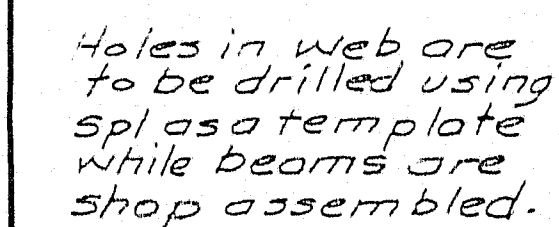 Holes in web are
to be drilled using
spl as a template
while beams are
shop assembled.